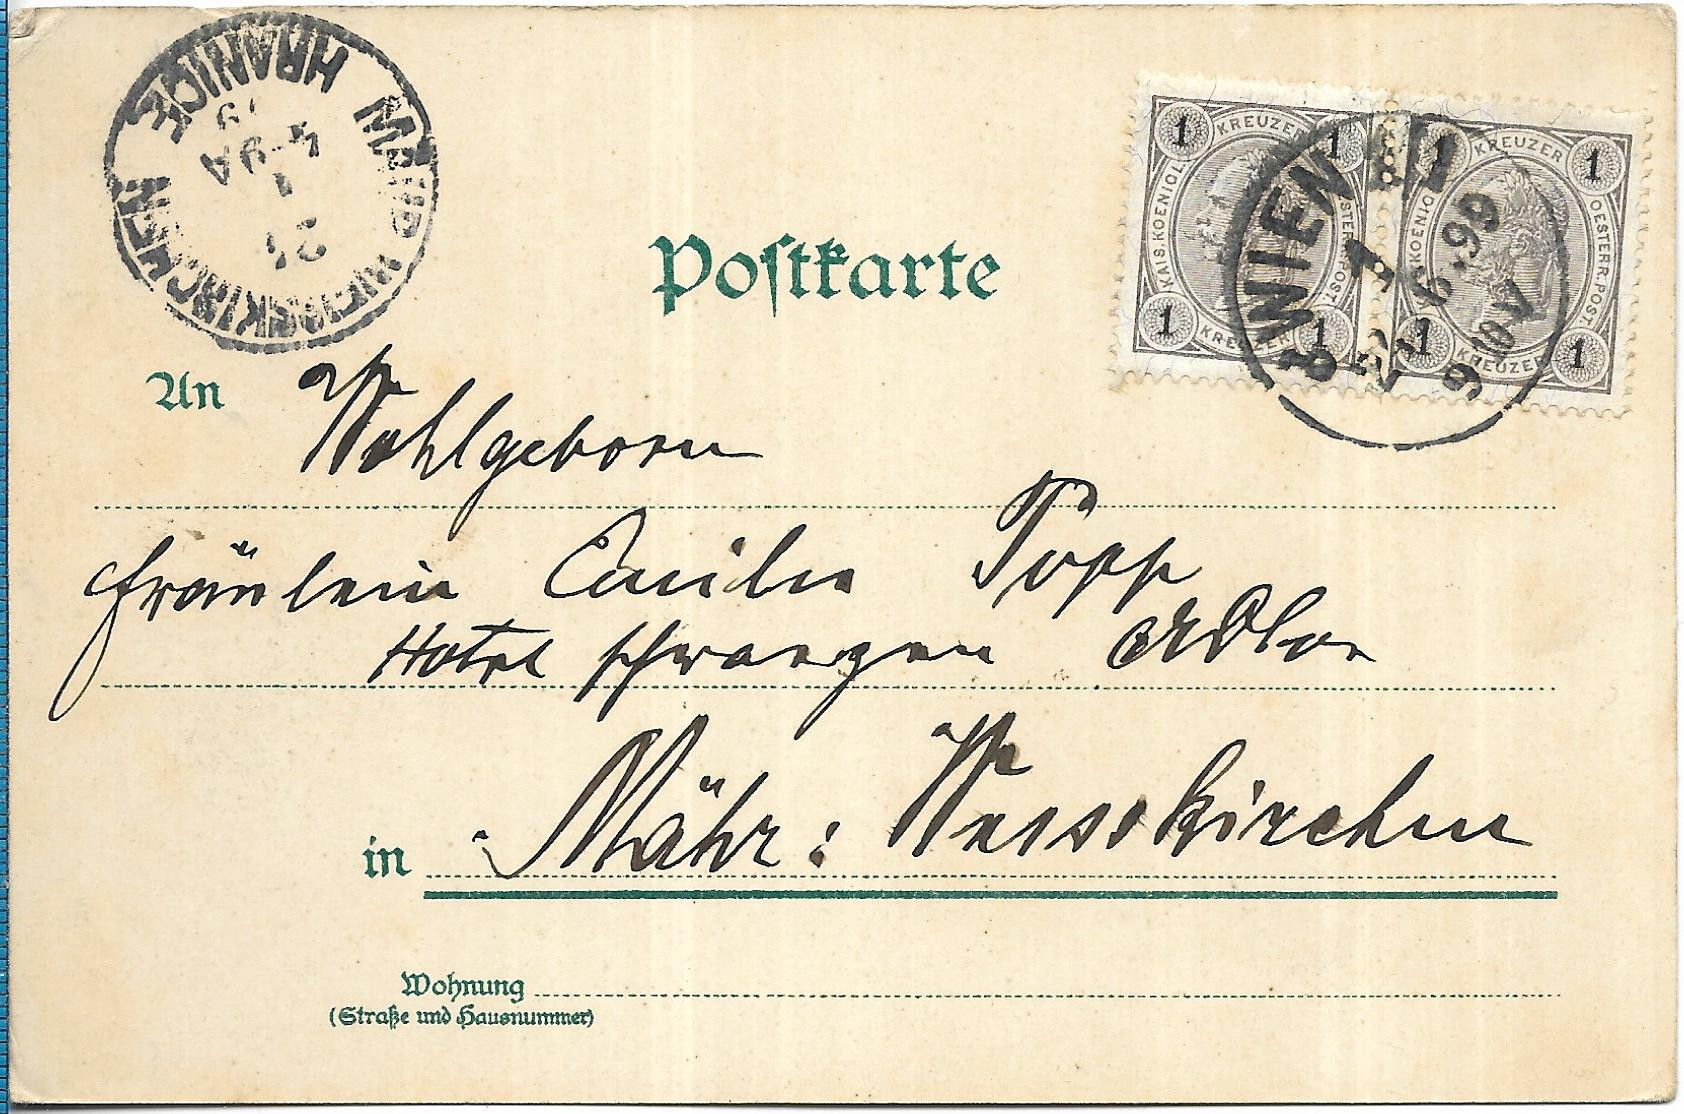 HRANICE
MÄHR. WEISSKIRCHEN
Postkarte
1 KREUZER 1
KAIS. KOENIGL. OESTERR. POST.
1 KREUZER 1
1 KREUZER 1
KAIS. KOENIGL. OESTERR. POST.
1 KREUZER 1
WIEN
6.99
An Wohlgeborn
Fräulein Emilie Popp
Hotel schwarzen Adler
in Mähr: Weisskirchen
Wohnung
(Straße und Hausnummer)